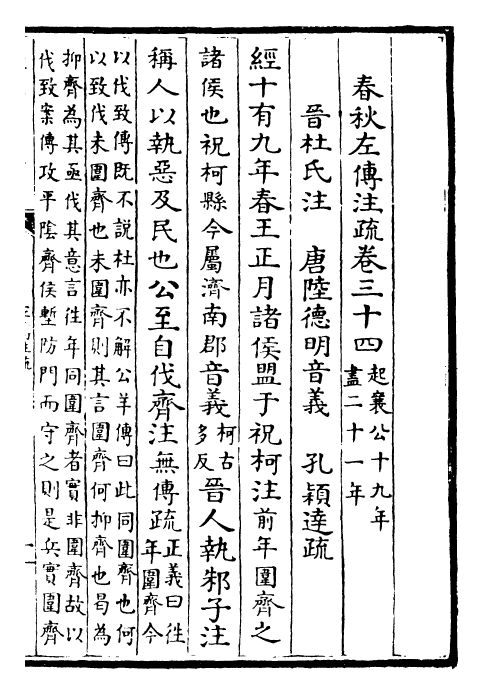 春秋左傳注疏卷三十四 起襄公十九年盡二十一年
晉杜氏注 唐陸德明音義 孔穎達疏
經十有九年春王正月諸侯盟于祝柯注前年圍齊之
諸侯也祝柯縣今屬濟南郡音義柯古多反晉人執邾子注
稱人以執惡及民也公至自伐齊注無傳疏正義曰往年圍齊今
以伐致傳既不說杜亦不解公羊傳曰此同圍齊也何
以致伐未圍齊也未圍齊則其言圍齊何抑齊也曷為
抑齊為其亟伐其意言往年同圍齊者實非圍齊故以
伐致案傳攻平陰齊侯塹防門而守之則是兵實圍齊